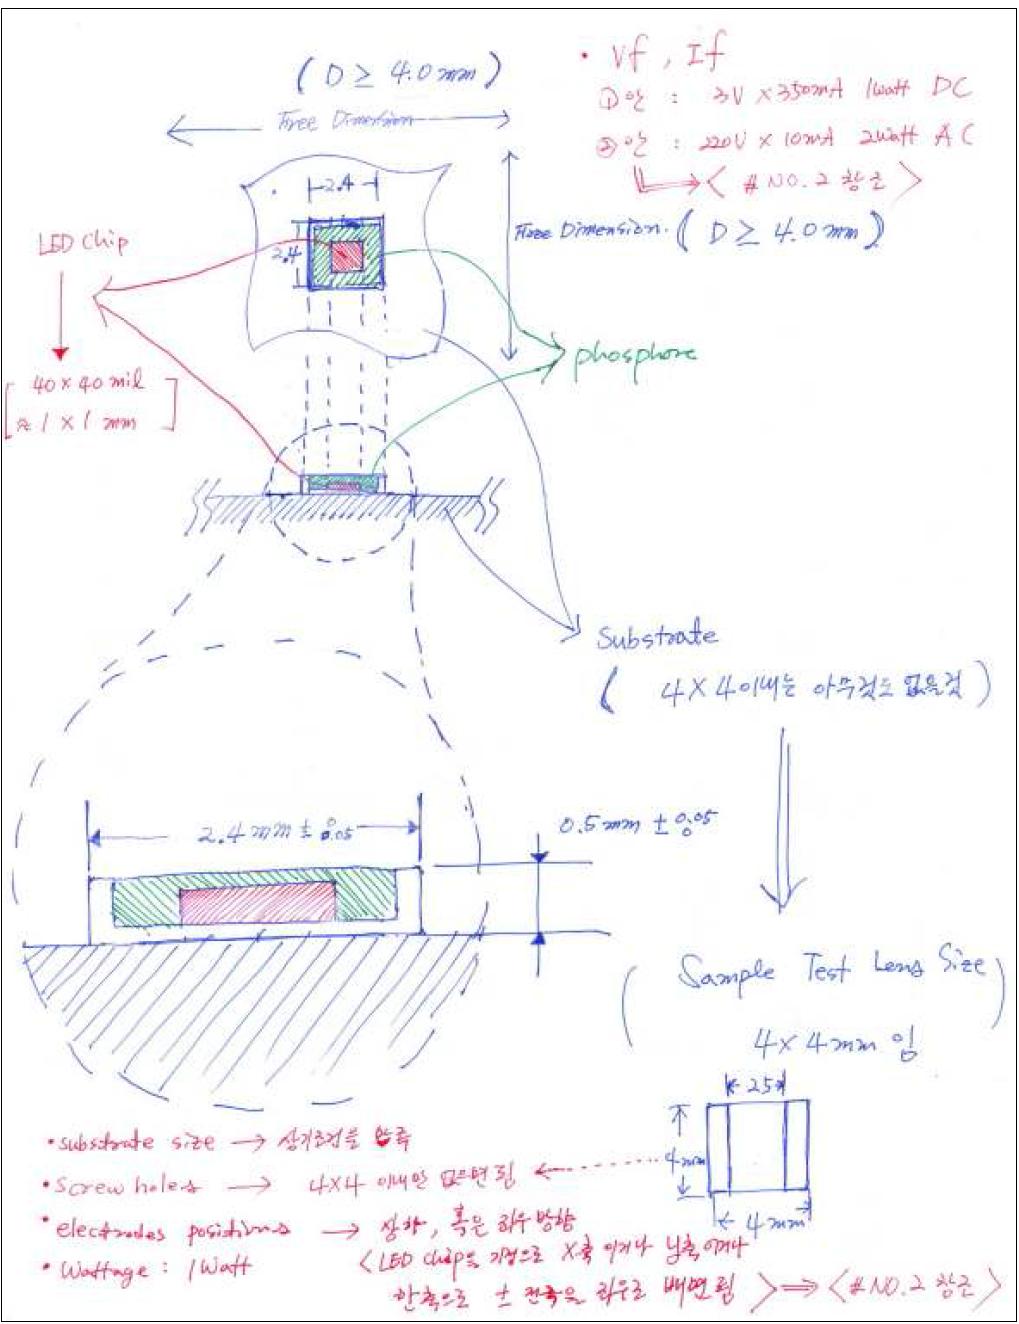 ( D ≥ 4.0 mm )
Free Dimension
• Vf , If
①안 : 3V × 350mA 1watt DC
②안 : 220V × 10mA 2watt AC
< # NO. 2 참조 >
2.4
2.4
Free Dimension. ( D ≥ 4.0 mm )
LED Chip
phosphore
[ 40 × 40 mil
≈ 1 × 1 mm ]
Substrate
( 4 × 4 이내는 아무것도 없을것 )
2.4 mm ± 0.05
0.5 mm ± 0.05
( Sample Test Lens Size
4 × 4 mm 임 )
25
4 mm
4 mm
• substrate size → 상기조건을 만족
• Screw holes → 4×4 이내만 없으면 됨
• electrodes positions → 상하, 혹은 좌우 방향
< LED chip을 기점으로 X축 이거나 Y축 이거나
한축으로 ± 전극을 좌우로 배면됨 > ⇒ < # NO. 2 참조 >
• Wattage : 1Watt